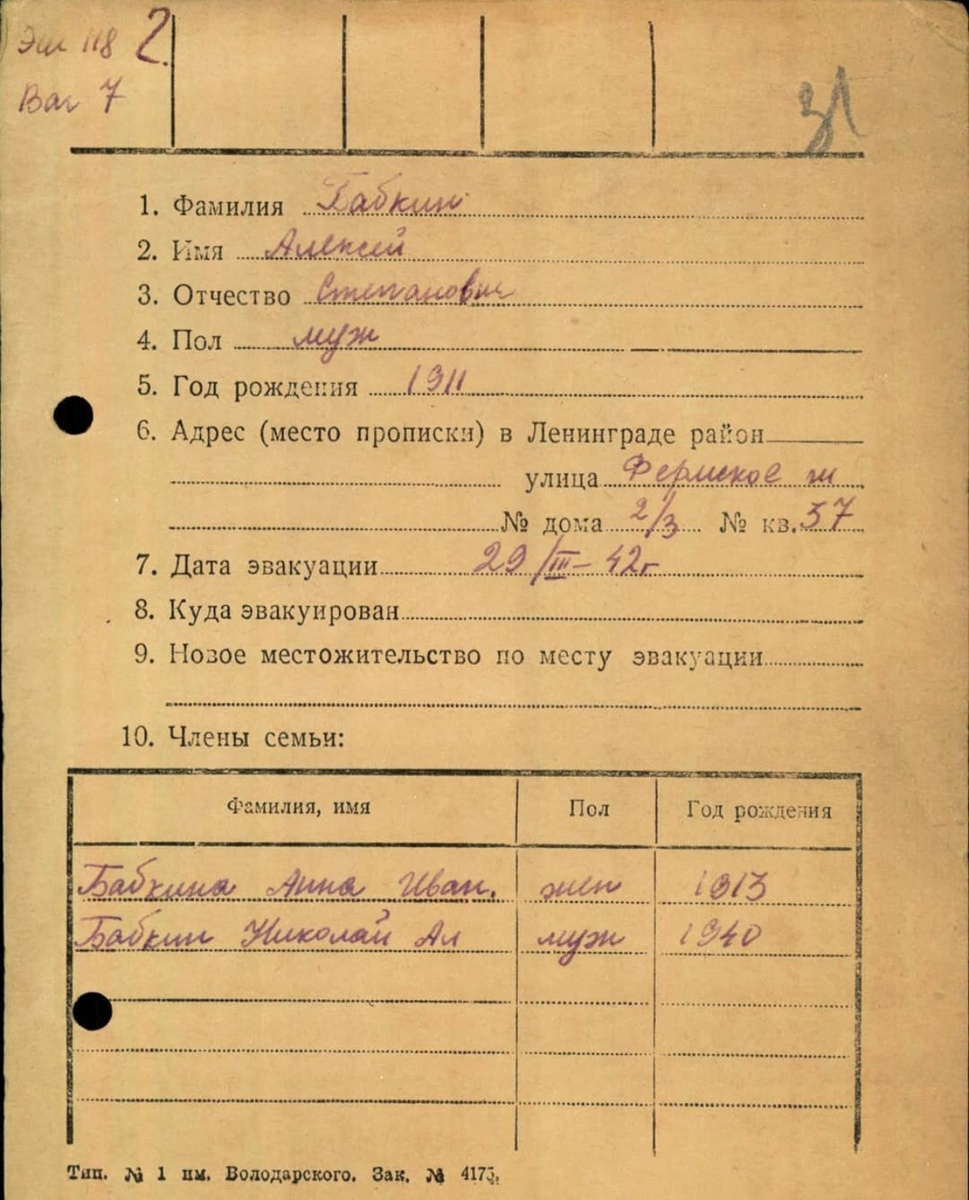 Эш 118 2.
Ваг 7
1. Фамилия Бабкин
2. Имя Алексей
3. Отчество Степанович
4. Пол муж
5. Год рождения 1911
6. Адрес (место прописки) в Ленинграде район
улица Фермское ш
№ дома 2/3 № кв. 57
7. Дата эвакуации 29/III-42г
8. Куда эвакуирован
9. Новое местожительство по месту эвакуации
10. Члены семьи:
Фамилия, имя Пол Год рождения
Бабкина Анна Иван. жен 1913
Бабкин Николай Ал муж 1940
Тип. № 1 им. Володарского. Зак. №